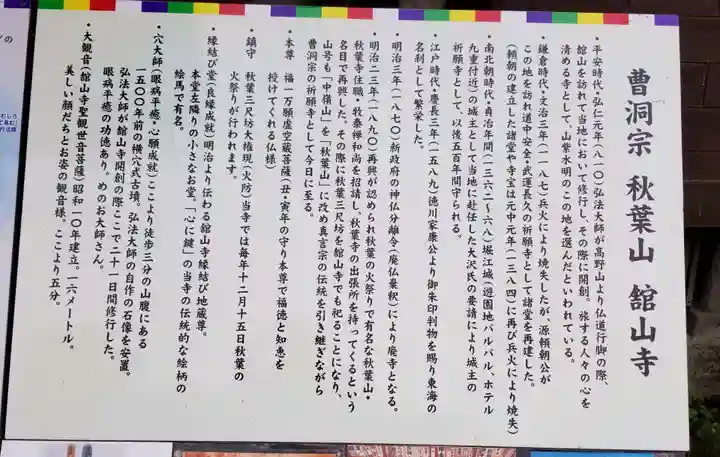 曹洞宗 秋葉山 舘山寺
・平安時代・弘仁元年(八一〇)弘法大師が高野山より仏道行脚の際、
舘山を訪れて当地において修行し、その際に開創。旅する人々の心を
清める寺として、山紫水明のこの地を選んだといわれている。
・鎌倉時代・文治三年(一一八七)兵火により焼失したが、源頼朝公が
この地を訪れ道中安全・武運長久の祈願寺として諸堂を再建した。
(頼朝の建立した諸堂や寺宝は元中元年(一三八四)に再び兵火により焼失)
・南北朝時代・貞治年間(一三六二〜六八)堀江城(遊園地パルパル、ホテル
九重付近)の城主として当地に赴任した大沢氏の要請により城主の
祈願寺として、以後五百年間守られる。
・江戸時代・慶長三年(一五八九)徳川家康公より御朱印判物を賜り東海の
名刹として繁栄した。
・明治三年(一八七〇)新政府の神仏分離令(廃仏棄釈)により廃寺となる。
・明治二三年(一八九〇)再興が認められ秋葉の火祭りで有名な秋葉山・
秋葉寺住職・牧泰禅和尚を招請し、秋葉寺の出張所を持ってくるという
名目で再興した。その際に秋葉三尺坊を舘山寺でも祀ることになり、
山号も「中禅山」を「秋葉山」に改め真言宗の伝統を引き継ぎながら
曹洞宗の祈願寺として今日に至る。
・本尊 福一万願虚空蔵菩薩(丑・寅年の守り本尊で福徳と知恵を
授けてくれる仏様)
・鎮守 秋葉三尺坊大権現(火防)当寺では毎年十二月十五日秋葉の
火祭りが行われます。
・縁結び堂(良縁成就)明治より伝わる舘山寺縁結び地蔵尊。
本堂左隣りの小さなお堂。「心に鍵」の当寺の伝統的な絵柄の
絵馬で有名。
・穴大師(眼病平癒・心願成就)ここより徒歩三分の山腹にある
一五〇〇年前の横穴式古墳。弘法大師の自作の石像を安置。
弘法大師が舘山寺開創の際ここで二十一日間修行した。
眼病平癒の功徳あり。めのお大師さん。
・大観音(舘山寺聖観世音菩薩)昭和一〇年建立。一六メートル。
美しい顔だちとお姿の観音様。ここより五分。